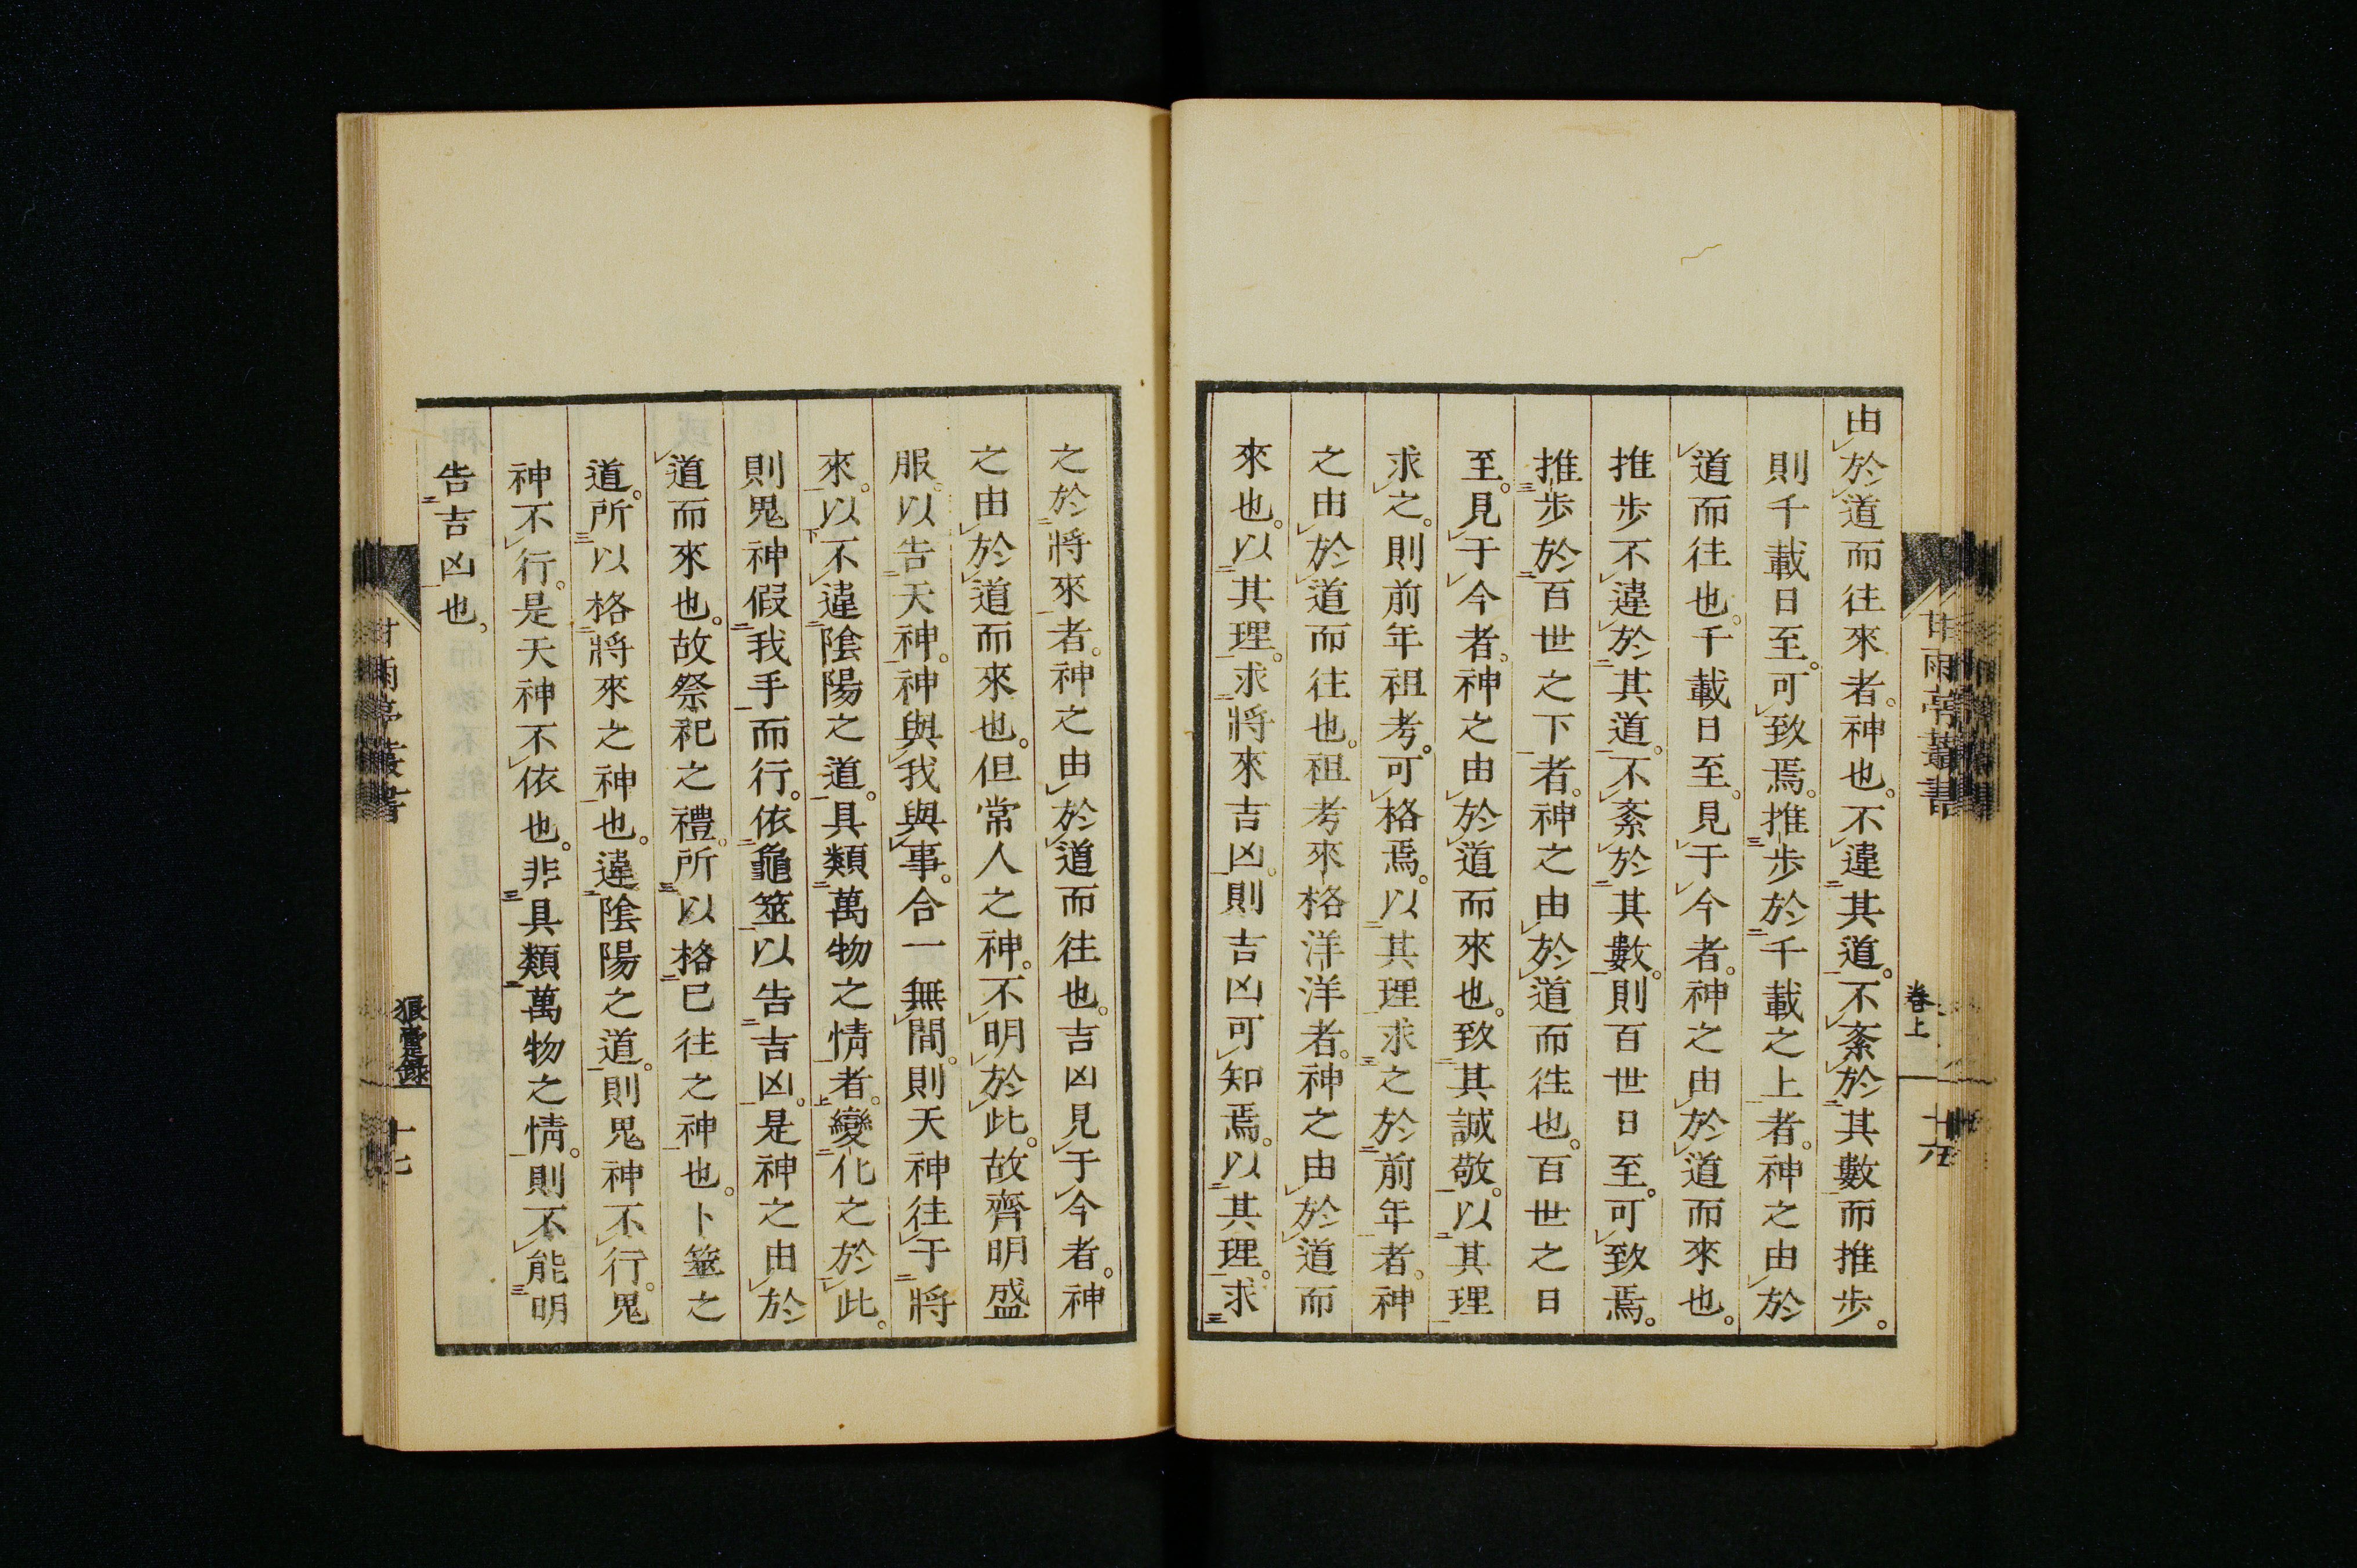 由於道而往來者。神也。不違其道。不紊於其數而推步。
則千載日至。可致焉。推步於千載之上者。神之由於
道而往也。千載日至。見于今者。神之由於道而來也。
推步不違於其道。不紊於其數。則百世日至。可致焉。
推步於百世之下者。神之由於道而往也。百世之日
至。見于今者。神之由於道而來也。致其誠敬。以其理
求之。則前年祖考。可格焉。以其理求之於前年者。神
之由於道而往也。祖考來格洋洋者。神之由於道而
來也。以其理。求將來吉凶。則吉凶可知焉。以其理。求
之於將來者。神之由於道而往也。吉凶見于今者。神
之由於道而來也。但常人之神。不明於此。故齊明盛
服。以告天神。神與我與事。合一無間。則天神往于將
來。以不違陰陽之道。具類萬物之情者。變化之於此。
則鬼神假我手而行。依龜筮以告吉凶。是神之由於
道而來也。故祭祀之禮。所以格已往之神也。卜筮之
道。所以格將來之神也。違陰陽之道。則鬼神不行。鬼
神不行。是天神不依也。非具類萬物之情。則不能明
告吉凶也。
甘雨亭叢書
卷上
十六
甘雨亭叢書
狼疐錄
十七